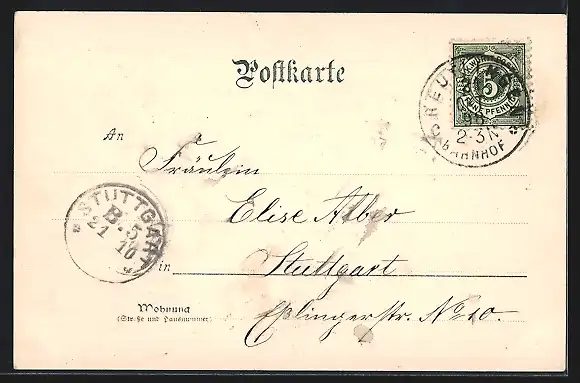 Postkarte
5
FÜNF PFENNIG
2-3N
BAHNHOF
An
Fräulein
Elise Alber
STUTTGART
B.5
21 10
in Stuttgart
Wohnung
(Straße und Hausnummer)
Eßlingerstr. No 10.